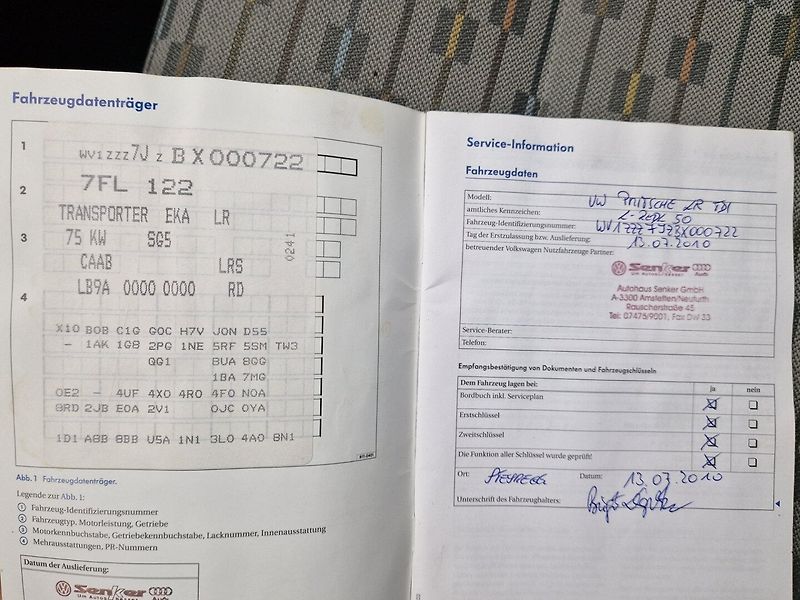 Fahrzeugdatenträger
1
WV1ZZZ7J Z BX000722
2
7FL 122
TRANSPORTER EKA LR
3
75 KW SG5
0241
CAAB LRS
4
LB9A 0000 0000 RD
X10 B0B C1G G0C H7V J0N D55
- 1AK 1G8 2PG 1NE 5RF 5SM TW3
QG1 8UA 8GG
1BA 7MG
0E2 - 4UF 4X0 4R0 4F0 N0A
8RD 2JB E0A 2V1 0JC 0YA
1D1 A8B 8BB U5A 1N1 3L0 4A0 8N1
Abb. 1 Fahrzeugdatenträger.
Legende zur Abb. 1:
1 Fahrzeug-Identifizierungsnummer
2 Fahrzeugtyp, Motorleistung, Getriebe
3 Motorkennbuchstabe, Getriebekennbuchstabe, Lacknummer, Innenausstattung
4 Mehrausstattungen, PR-Nummern
Datum der Auslieferung:
Senker
Service-Information
Fahrzeugdaten
Modell: VW PRITSCHE LR TDI
amtliches Kennzeichen:
Fahrzeug-Identifizierungsnummer: WV1ZZZ7JZBX000722
Tag der Erstzulassung bzw. Auslieferung: 13.07.2010
betreuender Volkswagen Nutzfahrzeuge Partner:
Senker
Audi
Autohaus Senker GmbH
A-3300 Amstetten/Neufurth
Rauscherstraße 45
Tel: 07475/9001, Fax DW 33
Service-Berater:
Telefon:
Empfangsbestätigung von Dokumenten und Fahrzeugschlüsseln
Dem Fahrzeug lagen bei: ja nein
Bordbuch inkl. Serviceplan
Erstschlüssel
Zweitschlüssel
Die Funktion aller Schlüssel wurde geprüft!
Ort: Datum: 13.07.2010
Unterschrift des Fahrzeughalters: